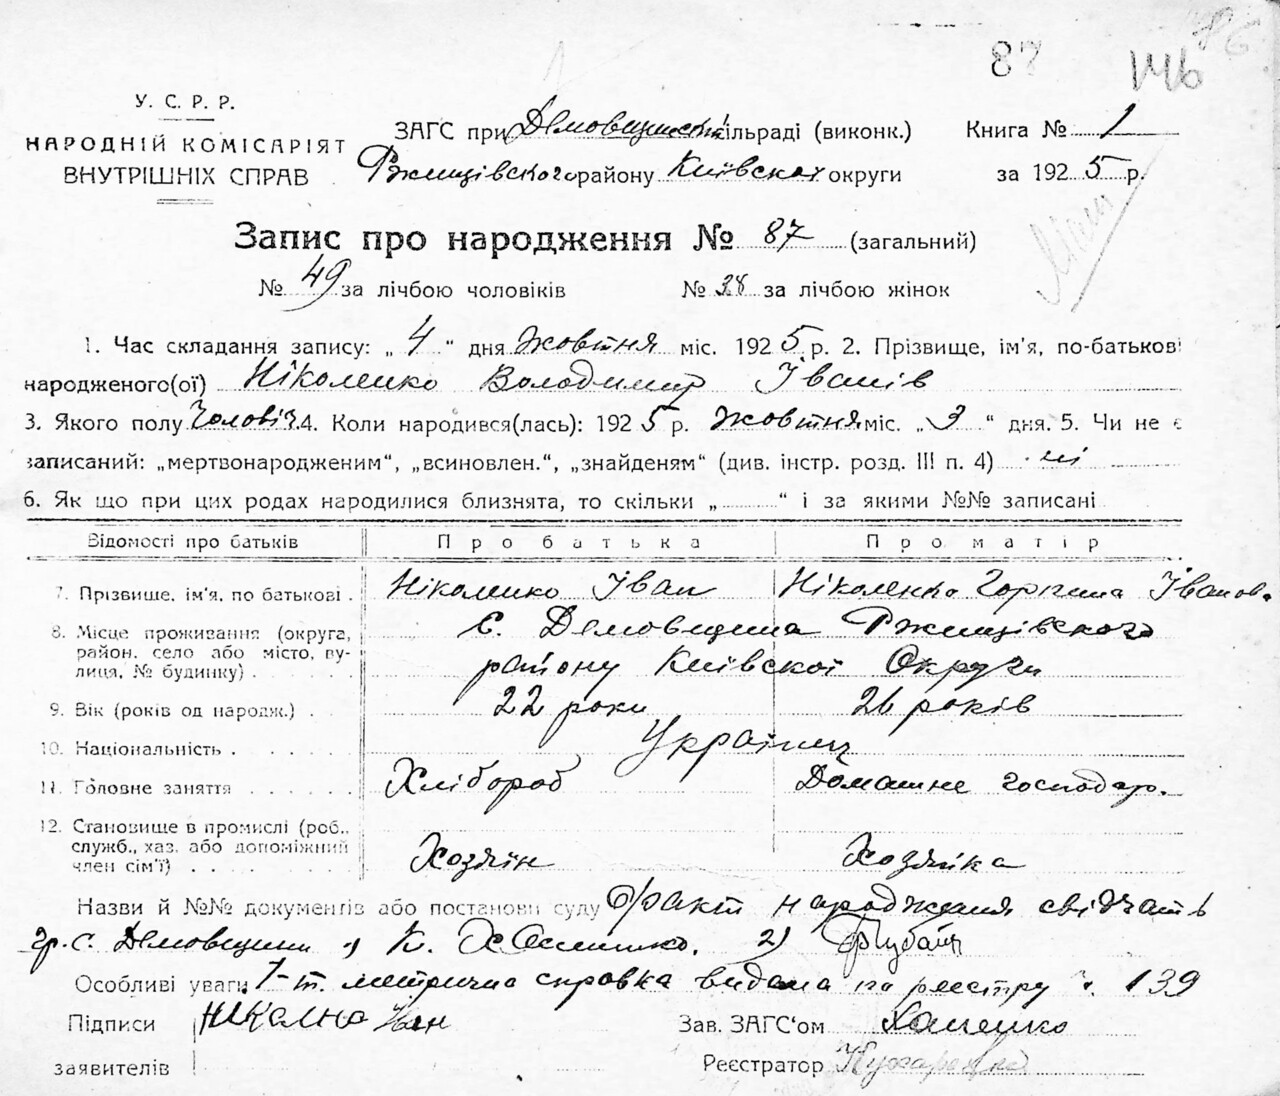 87 146
У. С. Р. Р.
НАРОДНІЙ КОМІСАРІЯТ
ВНУТРІШНІХ СПРАВ
ЗАГС при Демовщинськ сільраді (виконк.) Книга № 1
Ржищівського району Київської округи за 1925 р.
Запис про народження № 87 (загальний)
№ 49 за лічбою чоловіків № 38 за лічбою жінок
1. Час складання запису: „ 4 “ дня жовтня міс. 1925 р. 2. Прізвище, ім'я, по-батькові
народженого(ої) Ніколенко Володимир Іванів
3. Якого полу Чоловіч. 4. Коли народився(лась): 1925 р. жовтня міс. „ 3 “ дня. 5. Чи не є
записаний: „мертвонародженим“, „всиновлен.“, „знайденям“ (див. інстр. розд. III п. 4) ні
6. Як що при цих родах народилися близнята, то скільки „ “ і за якими №№ записані
Відомості про батьків Про батька Про матір
7. Прізвише, ім'я, по батькові . Ніколенко Іван Ніколенко Горпина Іванов.
8. Місце проживання (округа, район, село або місто, вулиця, № будинку) . с. Демовщина Ржищівського
району Київської Округи
9. Вік (років од народж.) . . 22 роки 26 років
10. Національність . Українці
11. Головне заняття Хлібороб Домашне господар.
12. Становище в промислі (роб., служб., хаз. або допоміжний член сім'ї) Хозяїн Хозяйка
Назви й №№ документів або постанови суду Факт народження свідчать
гр. с. Демовщини 1) К. 2)
Особливі уваги 1-т. метрична справка видана по реєстру ч. 139
Підписи Ніколенко Іван Зав. ЗАГС‘ом
заявителів Реєстратор